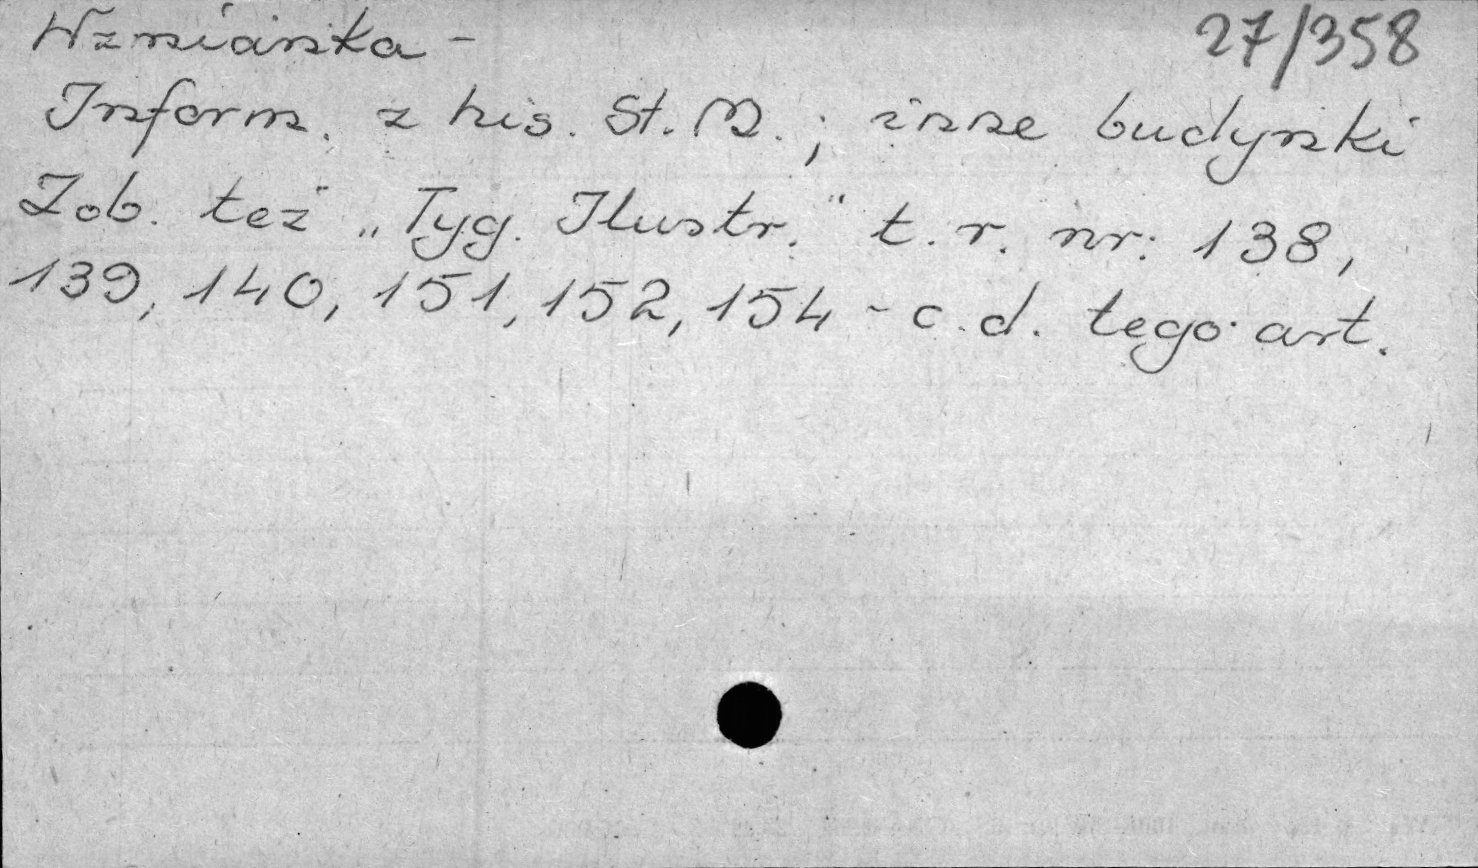 27/358
Wzmianka -
Inform. z his. St. M.; inne budynki
Zob. też „Tyg. Ilustr." t. r. nr: 138,
139, 140, 151, 152, 154 - c.d. tego art.